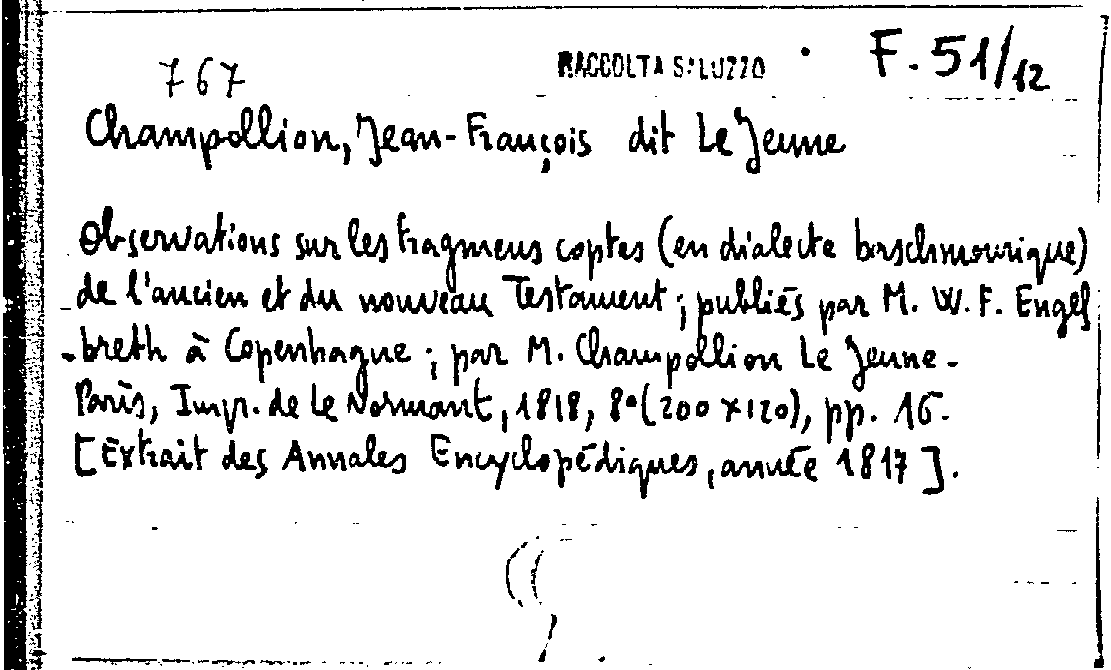 767 RACCOLTA SALUZZO F. 51/12
Champollion, Jean-François dit Le Jeune
Observations sur les fragmens coptes (en dialecte baschmourique)
de l'ancien et du nouveau Testament; publiés par M. W. F. Engel
-breth à Copenhague; par M. Champollion Le Jeune-
Paris, Impr. de Le Normant, 1818, 8° (200 x 120), pp. 16.
[Extrait des Annales Encyclopédiques, année 1817].